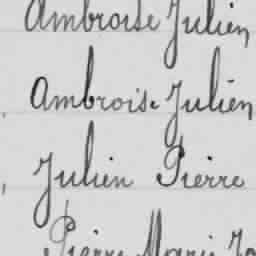 Ambroise Julien
, Ambroise Julien
, Julien Pierre
Pierre Marie Jo